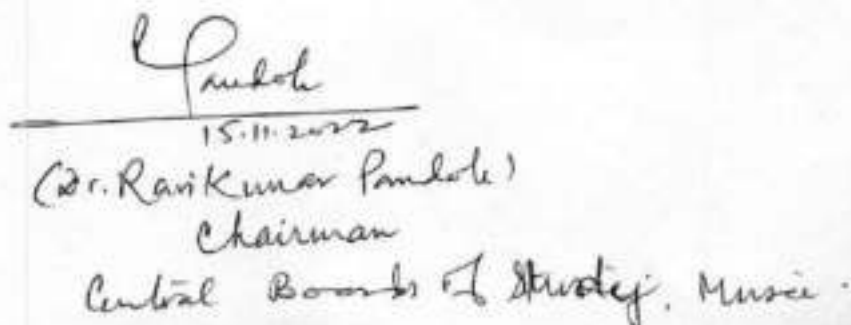 Pandole
15.11.2022
(Dr. Ravi Kumar Pandole)
Chairman
Central Boards of Studies, Music.